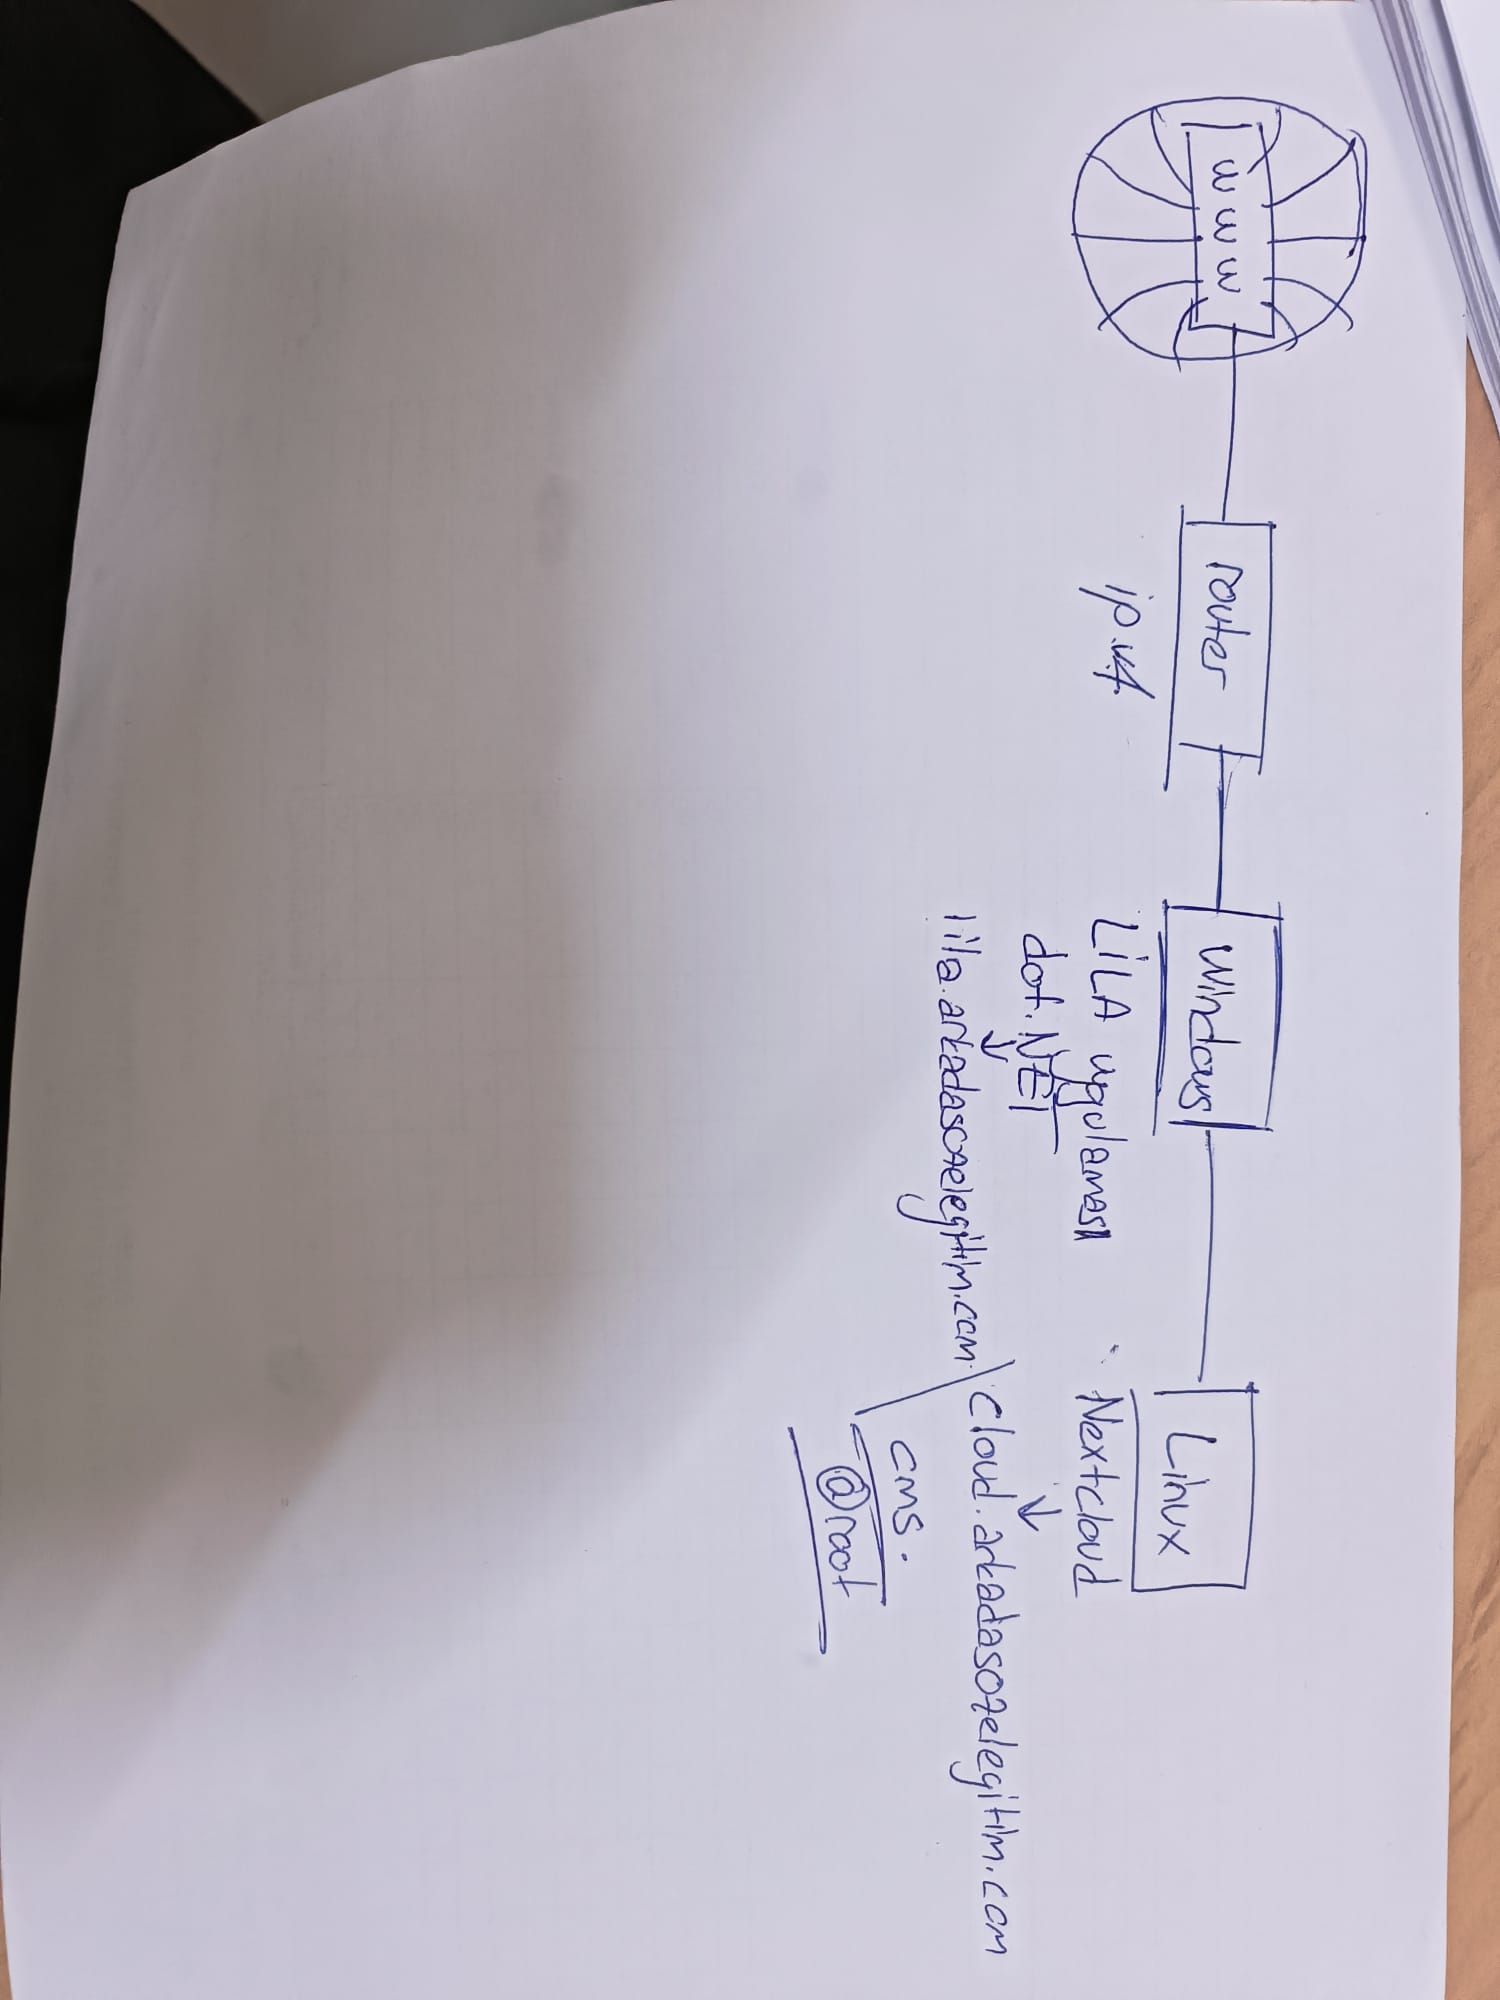 www
router
ip.v4
Windows
LiLA uygulaması
dot.NET
lila.arkadasozelegitim.com
Linux
Nextcloud
cloud.arkadasozelegitim.com
cms.
@root